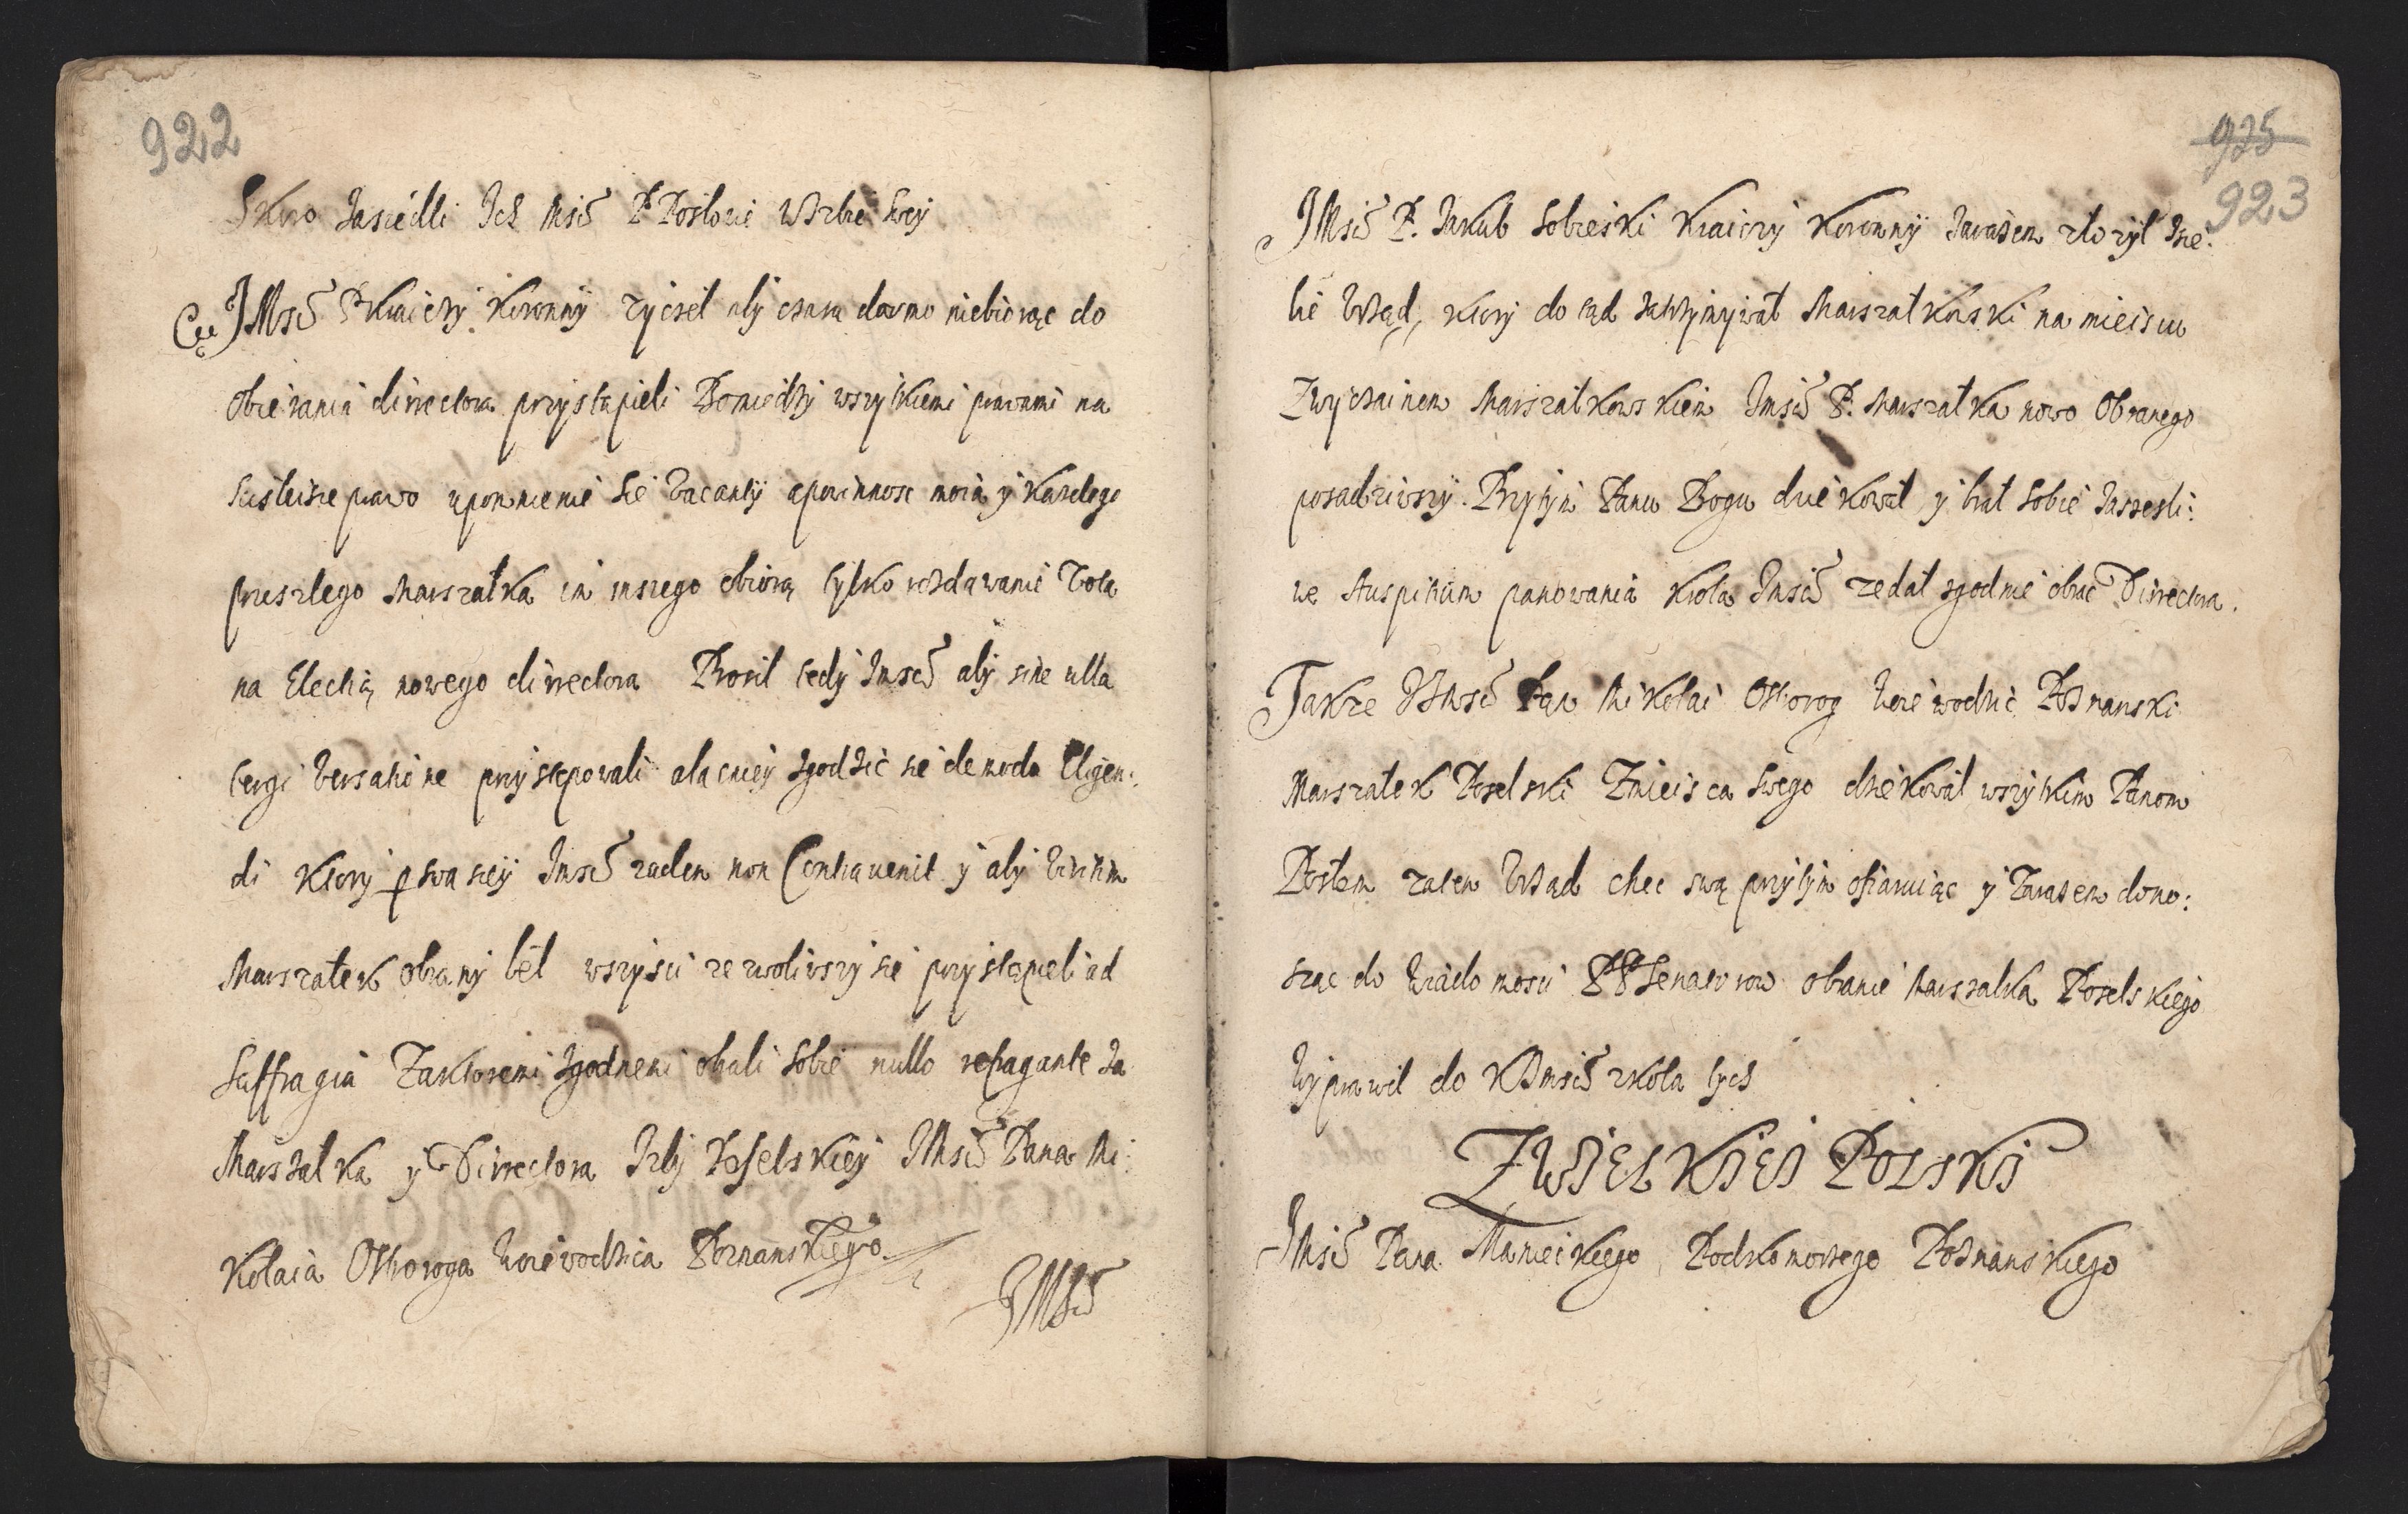 922
Skoro Zasiedli Ich Msć P Posłowie WIzbie Swey
JMsć P Kraiczy Koronny zyczeł aby czasu darmo niebiorąc do
obierania directora przystąpieli Pomiedzy wszytkiemi prawami na
scisleisze prawo upomnienie sie Vacanty apowinnosc moia y kazdego
przeszlego Marszałka in inszego obiorą tylko rozdawanie Vota
na Electią nowego directora Prosił tedy Jmsć aby sine ulla
tergi versatione przystępowali alacniey zgodzić sie de modo Eligen:
di ktory swasięy Jmsć zaden non Contravenit y aby Viritim
Marszałek obrany beł wszyscy zezwoliwszy sie przystąpieli ad
Suffragia Zaktoremi zgodnemi obrali sobie nullo repugante Za
Marszałka y Dirrectora Izby Poselskiey JMsć Pana Mi:
kołaia Ostroroga Woiewodzica Poznanskiego
JMść
925
923
JMsć P. Jakub Sobieski Kraiczy Koronny Zarazem złozył zsie:
bie Urząd, ktory do tąd zatrzymywał Marszałkoski na mieiscu
Zwyczainem Marszałkowskiem Jmsć P. Marszałka nowo Obranego
posadziwszy. Przytym Panu Bogu dziekował y brał sobie Zaszesli:
we Auspitium panowania Krola Jmsć ze dał zgodnie obrac Dirrectora.
Takze JMsć Pan Mikołai Ostrorog Woiewodzic Poznanski
Marszałek Poselski Zmieisca Swego dziekował wszytkim Panom
Posłom zaten Urząd chec swą przytym ofiaruiąc y Zarazem dono:
sząc do Wiadomosci PP Senatorow obranie Marszałka Poselskiego
Wyprawił do KJmsć zkoła tych
Z WIELKIEI POLSKI
JMsć Pana Manieckiego Podkomorzego Poznanskiego